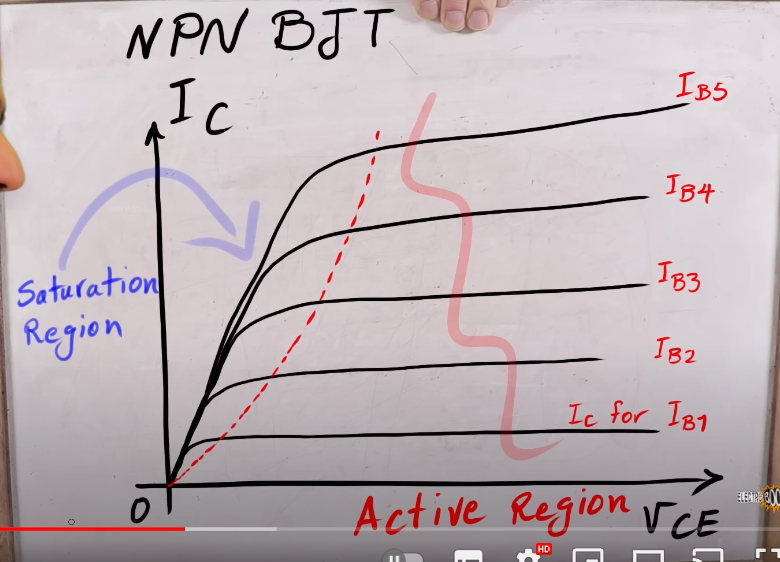 NPN BJT
IC
IB5
IB4
Saturation
Region
IB3
IB2
IC for IB1
0
Active Region
VCE
HD